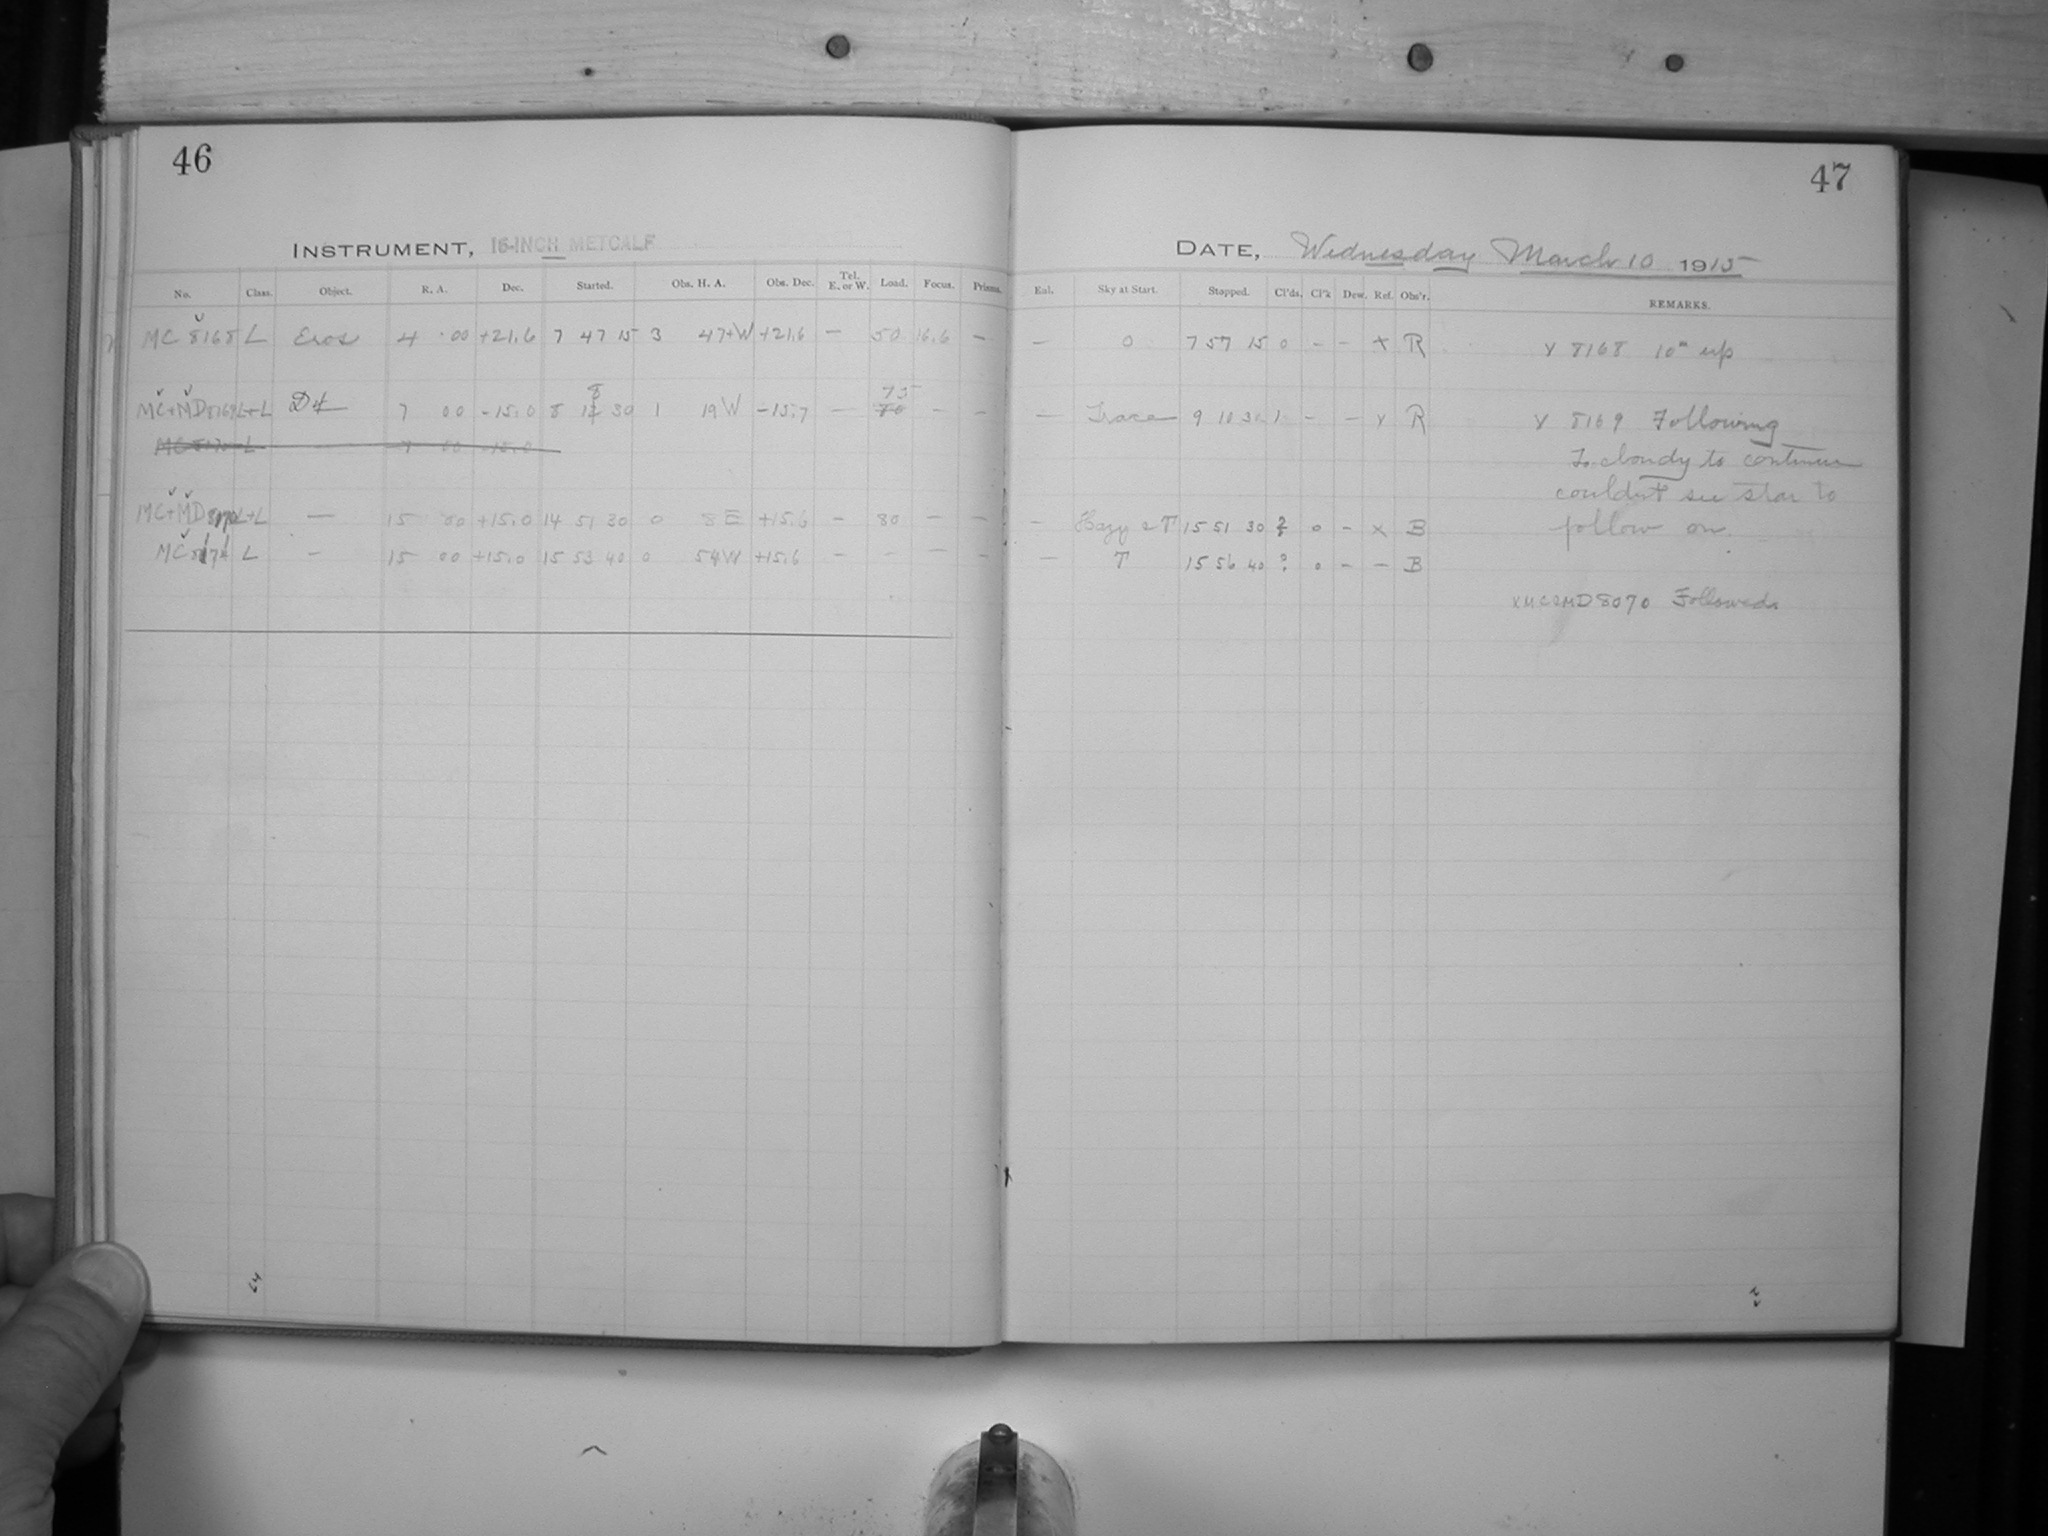 46
INSTRUMENT, 16-INCH METCALF
No. Class. Object. R. A. Dec. Started. Obs. H. A. Obs. Dec. Tel. E. or W. Load. Focus. Prisms.
MC 8168 L Eros 4 00 +21.6 7 47 15 3 47+W +21.6 — 50 16.6 —
8 75
MC+MD 8169 L+L 7 00 -15.0 8 30 1 19 W -15.7 — — —
L — 7 00 -15.0
MC+MD L+L — 15 00 +15.0 14 51 30 0 8 E +15.6 — 80 — —
MC L — 15 00 +15.0 15 53 40 0 54 W +15.6 — — — —
47
DATE, Wednesday March 10 1915
Eal. Sky at Start. Stopped. Cl'ds. Cl'k Dew. Ref. Obs'r. REMARKS.
— 0 7 57 15 0 — — x R x 8168 10m up
— Trace 9 10 30 1 — — x R x 8169 Following
To cloudy to continue
couldn't see star to
— Hazy & T 15 51 30 ? 0 — x B follow on.
— T 15 56 40 ? 0 — — B
x MC&MD 8070 Followed.